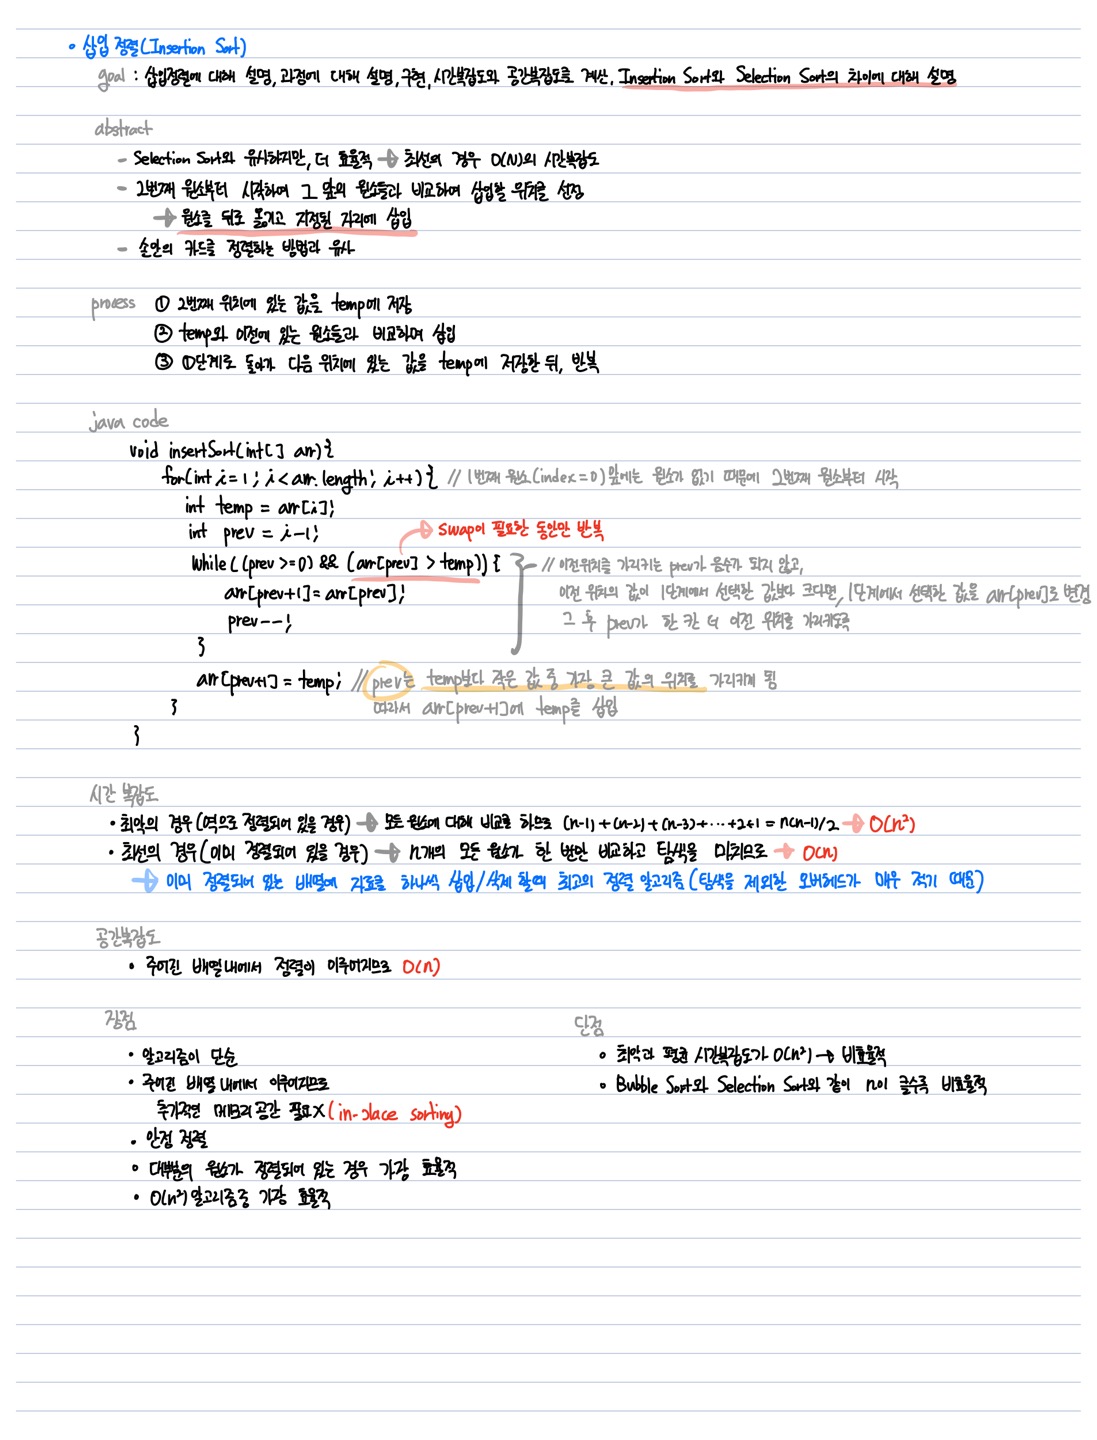 • 삽입 정렬(Insertion Sort)
goal : 삽입정렬에 대해 설명, 과정에 대해 설명, 구현, 시간복잡도와 공간복잡도를 계산, Insertion Sort와 Selection Sort의 차이에 대해 설명
abstract
- Selection Sort와 유사하지만, 더 효율적 → 최선의 경우 O(N)의 시간복잡도
- 2번째 원소부터 시작하여 그 앞의 원소들과 비교하여 삽입할 위치를 선정
→ 원소를 뒤로 옮기고 지정된 자리에 삽입
- 손안의 카드를 정렬하는 방법과 유사
process ① 2번째 위치에 있는 값을 temp에 저장
② temp와 이전에 있는 원소들과 비교하며 삽입
③ ①단계로 돌아가 다음 위치에 있는 값을 temp에 저장한 뒤, 반복
java code
void insertSort(int[] arr){
for(int i=1; i<arr.length; i++){ // 1번째 원소(index=0)앞에는 원소가 없기 때문에 2번째 원소부터 시작
int temp = arr[i];
int prev = i-1;
→ swap이 필요한 동안만 반복
while((prev >=0) && (arr[prev] > temp)) { // 이전위치를 가리키는 prev가 음수가 되지 않고,
arr[prev+1]=arr[prev]; 이전 위치의 값이 1단계에서 선택한 값보다 크다면, 1단계에서 선택한 값을 arr[prev]로 변경
prev--; 그 후 prev가 한 칸 더 이전 위치를 가리키도록
}
arr[prev+1] = temp; // prev는 temp보다 작은 값 중 가장 큰 값의 위치를 가리키게 됨
} 따라서 arr[prev+1]에 temp를 삽입
}
시간 복잡도
• 최악의 경우(역으로 정렬되어 있을 경우) → 모든 원소에 대해 비교를 하므로 (n-1)+(n-2)+(n-3)+···+2+1 = n(n-1)/2 → O(n²)
• 최선의 경우(이미 정렬되어 있을 경우) → n개의 모든 원소가 한 번만 비교하고 탐색을 마치므로 → O(n)
→ 이미 정렬되어 있는 배열에 자료를 하나씩 삽입/삭제 할때 최고의 정렬 알고리즘(탐색을 제외한 오버헤드가 매우 적기 때문)
공간복잡도
• 주어진 배열내에서 정렬이 이루어지므로 O(n)
장점
• 알고리즘이 단순
• 주어진 배열 내에서 이루어지므로
추가적인 메모리 공간 필요X(in-place sorting)
• 안정 정렬
• 대부분의 원소가 정렬되어 있는 경우 가장 효율적
• O(n²)알고리즘중 가장 효율적
단점
• 최악과 평균 시간복잡도가 O(n²) → 비효율적
• Bubble Sort와 Selection Sort와 같이 n이 클수록 비효율적